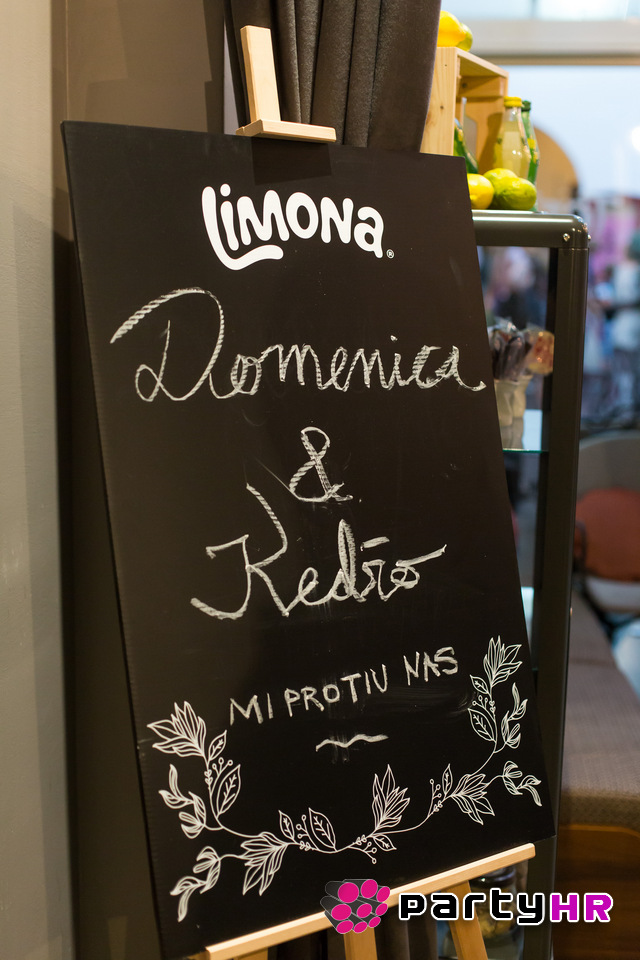 Limona®
Domenica
&
Kedžo
MI PROTIV NAS
partyHR